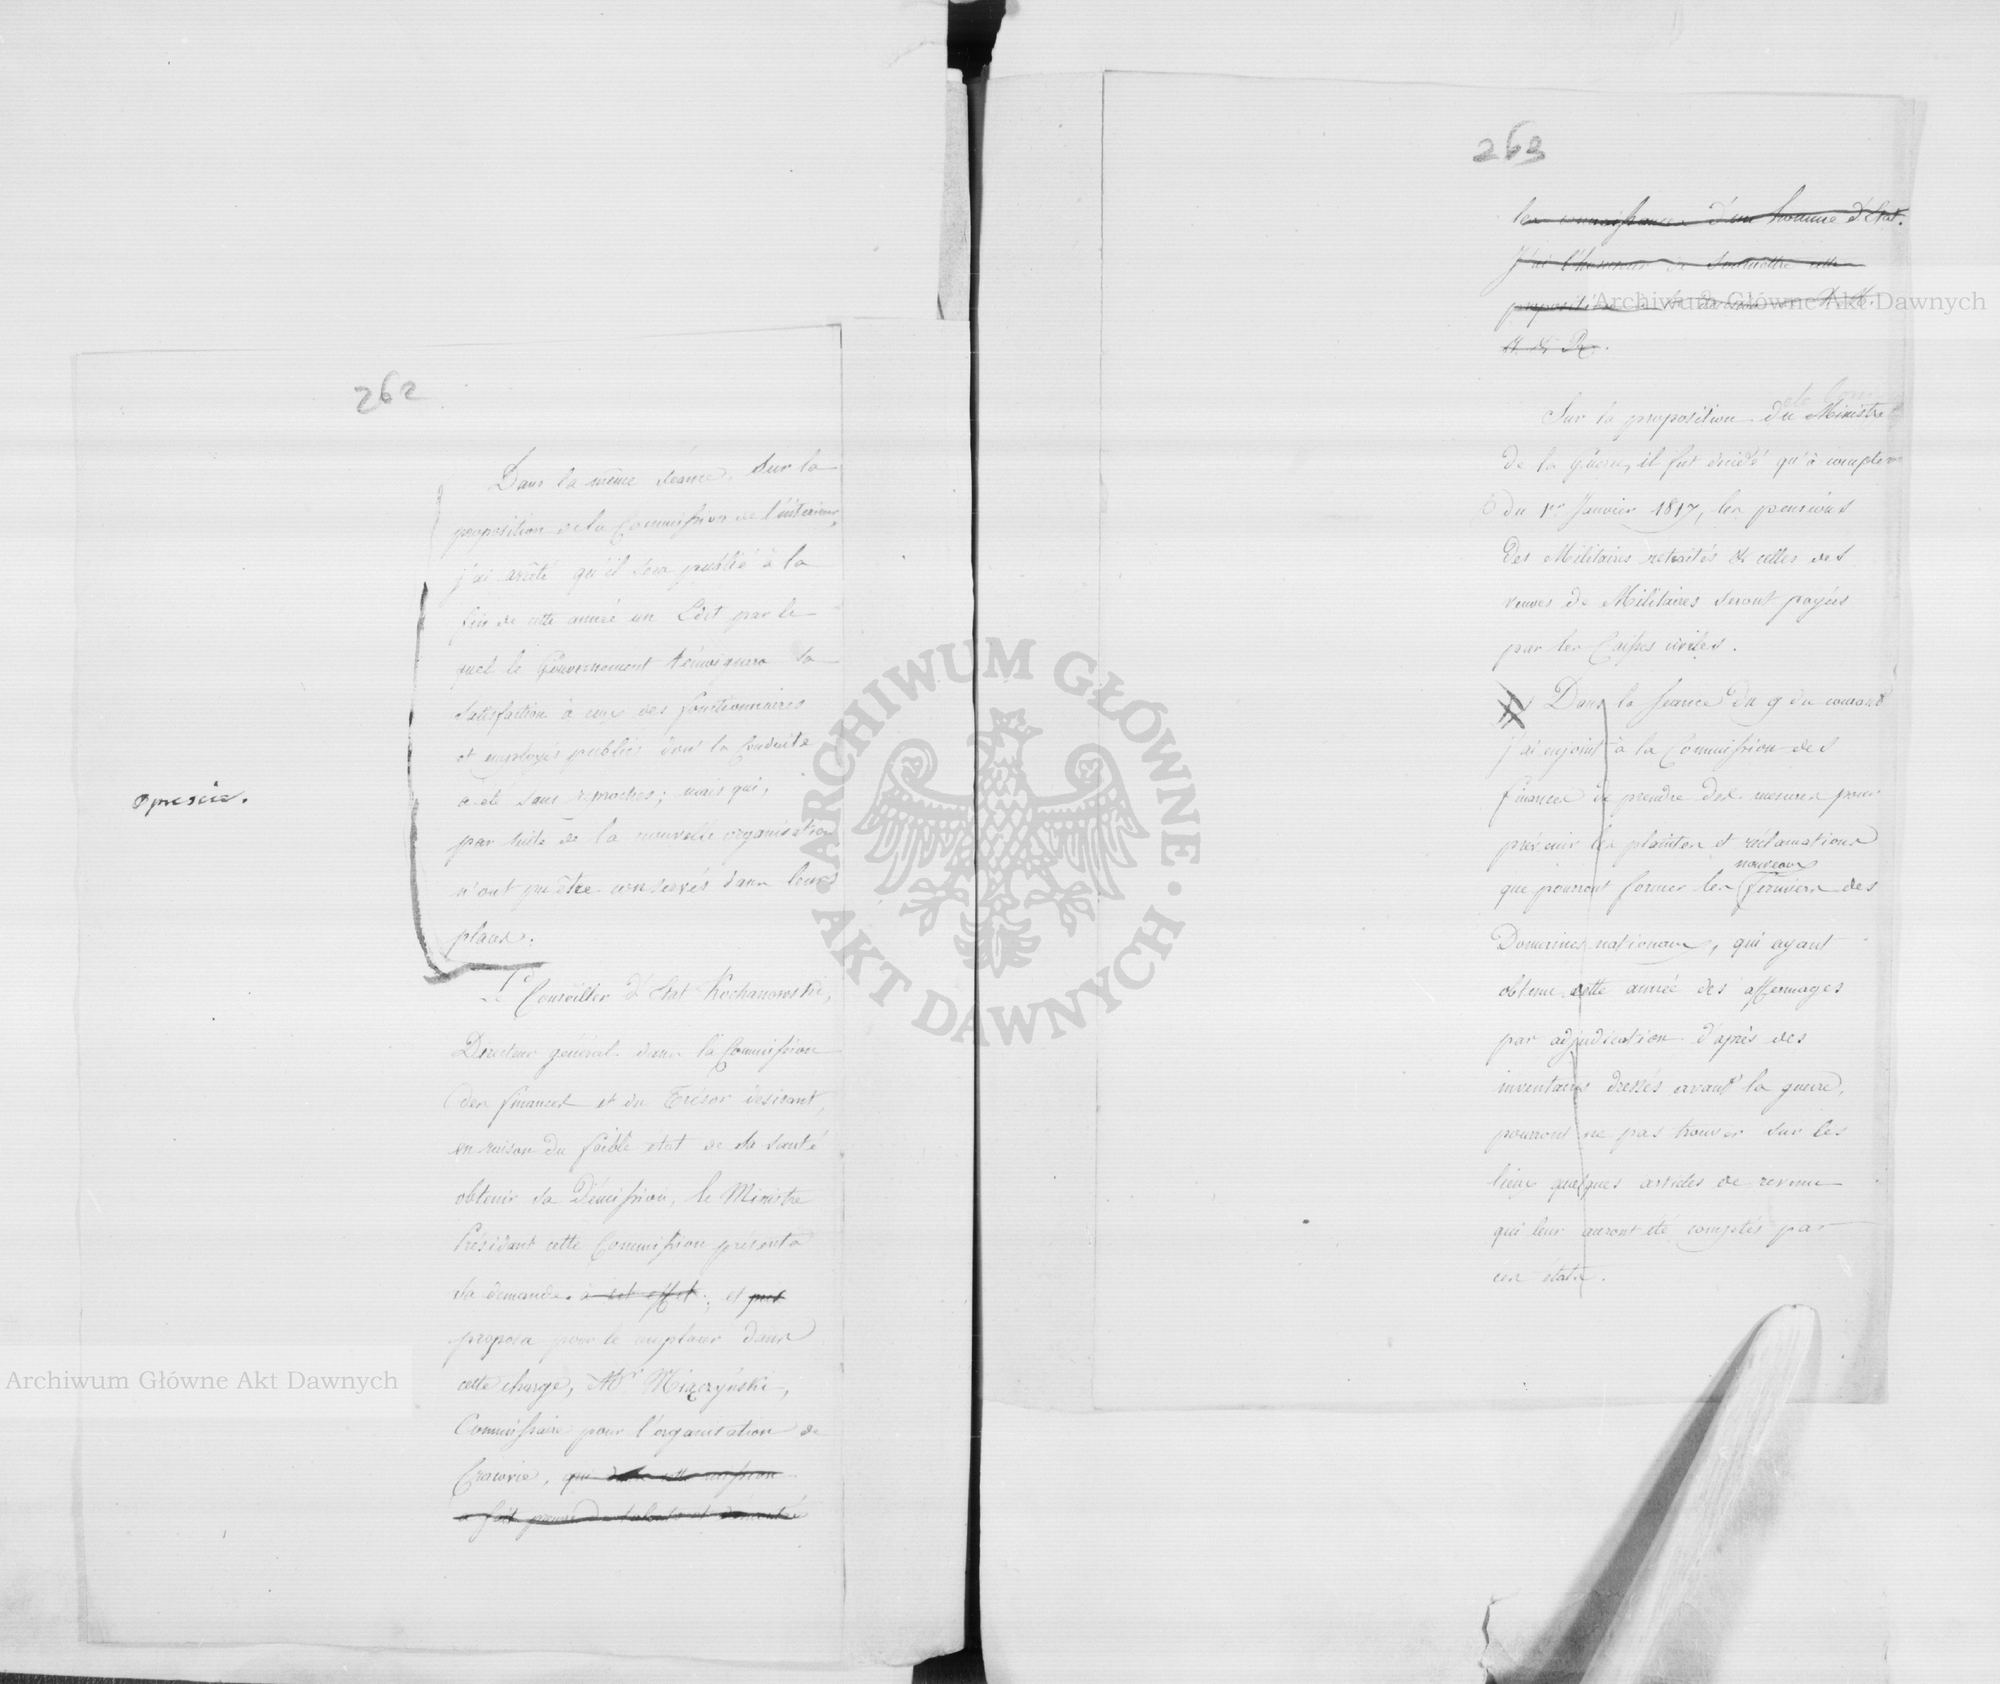 262
Dans la même séance, sur la
proposition de la Commission de l'intérieur,
j'ai arrêté qu'il sera publié à la
fin de cette année un Edit par le
quel le Gouvernement témoignera sa
satisfaction à ceux des fonctionnaires
et employés publics dont la Conduite
a été sans reproches; mais qui,
par suite de la nouvelle organisation
n'ont pu être conservés dans leurs
places.
opuścić.
Le Conseiller d'Etat Kochanowski,
Directeur général dans la Commission
des finances et du Trésor desirant,
en raison du faible état de sa santé
obtenir sa Démission, le Ministre
Président cette Commission présenta
sa demande. à cet effet; et
proposa pour le remplacer dans
cette charge, Mr Miączyński,
Commissaire pour l'organisation de
Cracovie, qui dans cette mission
a fait preuve de talents et
263
les connaissances d'un homme d'Etat.
J'ai l'honneur de soumettre cette
proposition à
Sur la proposition du Ministre
de la guerre, il fut décidé qu'à compter
du 1er Janvier 1817, les pensions
des Militaires retraités & celles des
veuves de Militaires seront payées
par les Caisses civiles.
Dans la séance du 9 du courant
j'ai enjoint à la Commission des
finances de prendre des mesures pour
prévenir les plaintes et réclamations
nouveaux
que pourront former les fermiers des
Domaines nationaux, qui ayant
obtenu cette année des affermages
par adjudication d'après des
inventaires dressés avant la guerre,
pourront ne pas trouver sur les
lieux quelques articles de revenu
qui leur auront été comptés par
ces états.
Archiwum Główne Akt Dawnych
Archiwum Główne Akt Dawnych
ARCHIWUM GŁÓWNE · AKT DAWNYCH ·